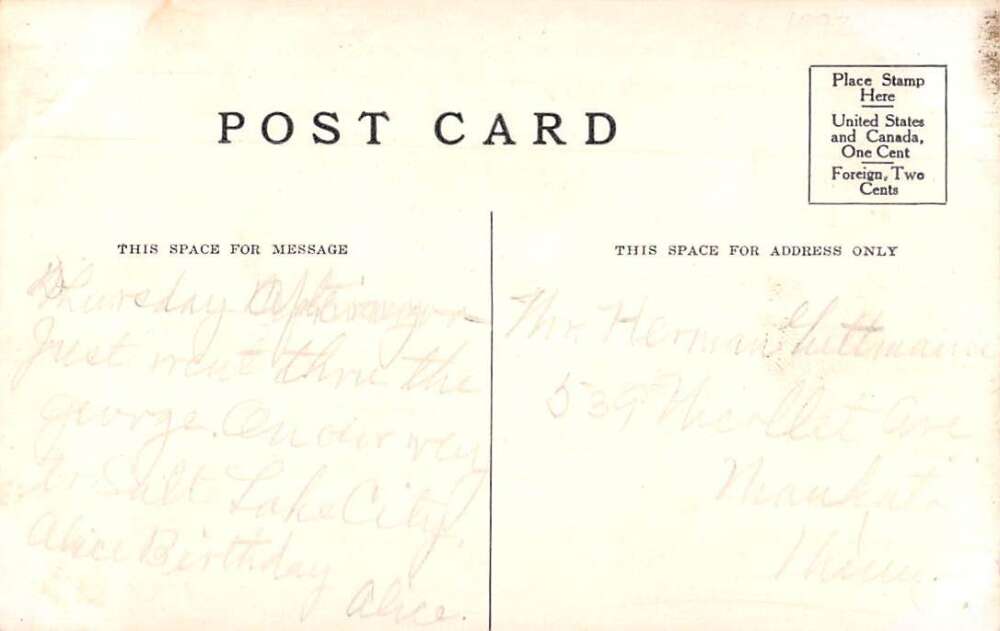 POST CARD
Place Stamp
Here
United States
and Canada,
One Cent
Foreign, Two
Cents
THIS SPACE FOR MESSAGE
Thursday Afternoon
Just went thru the
gorge. On our way
to Salt Lake City.
Alice Birthday
Alice.
THIS SPACE FOR ADDRESS ONLY
Mr. Herman
539 Nicollet Ave
Mankato
Minn.